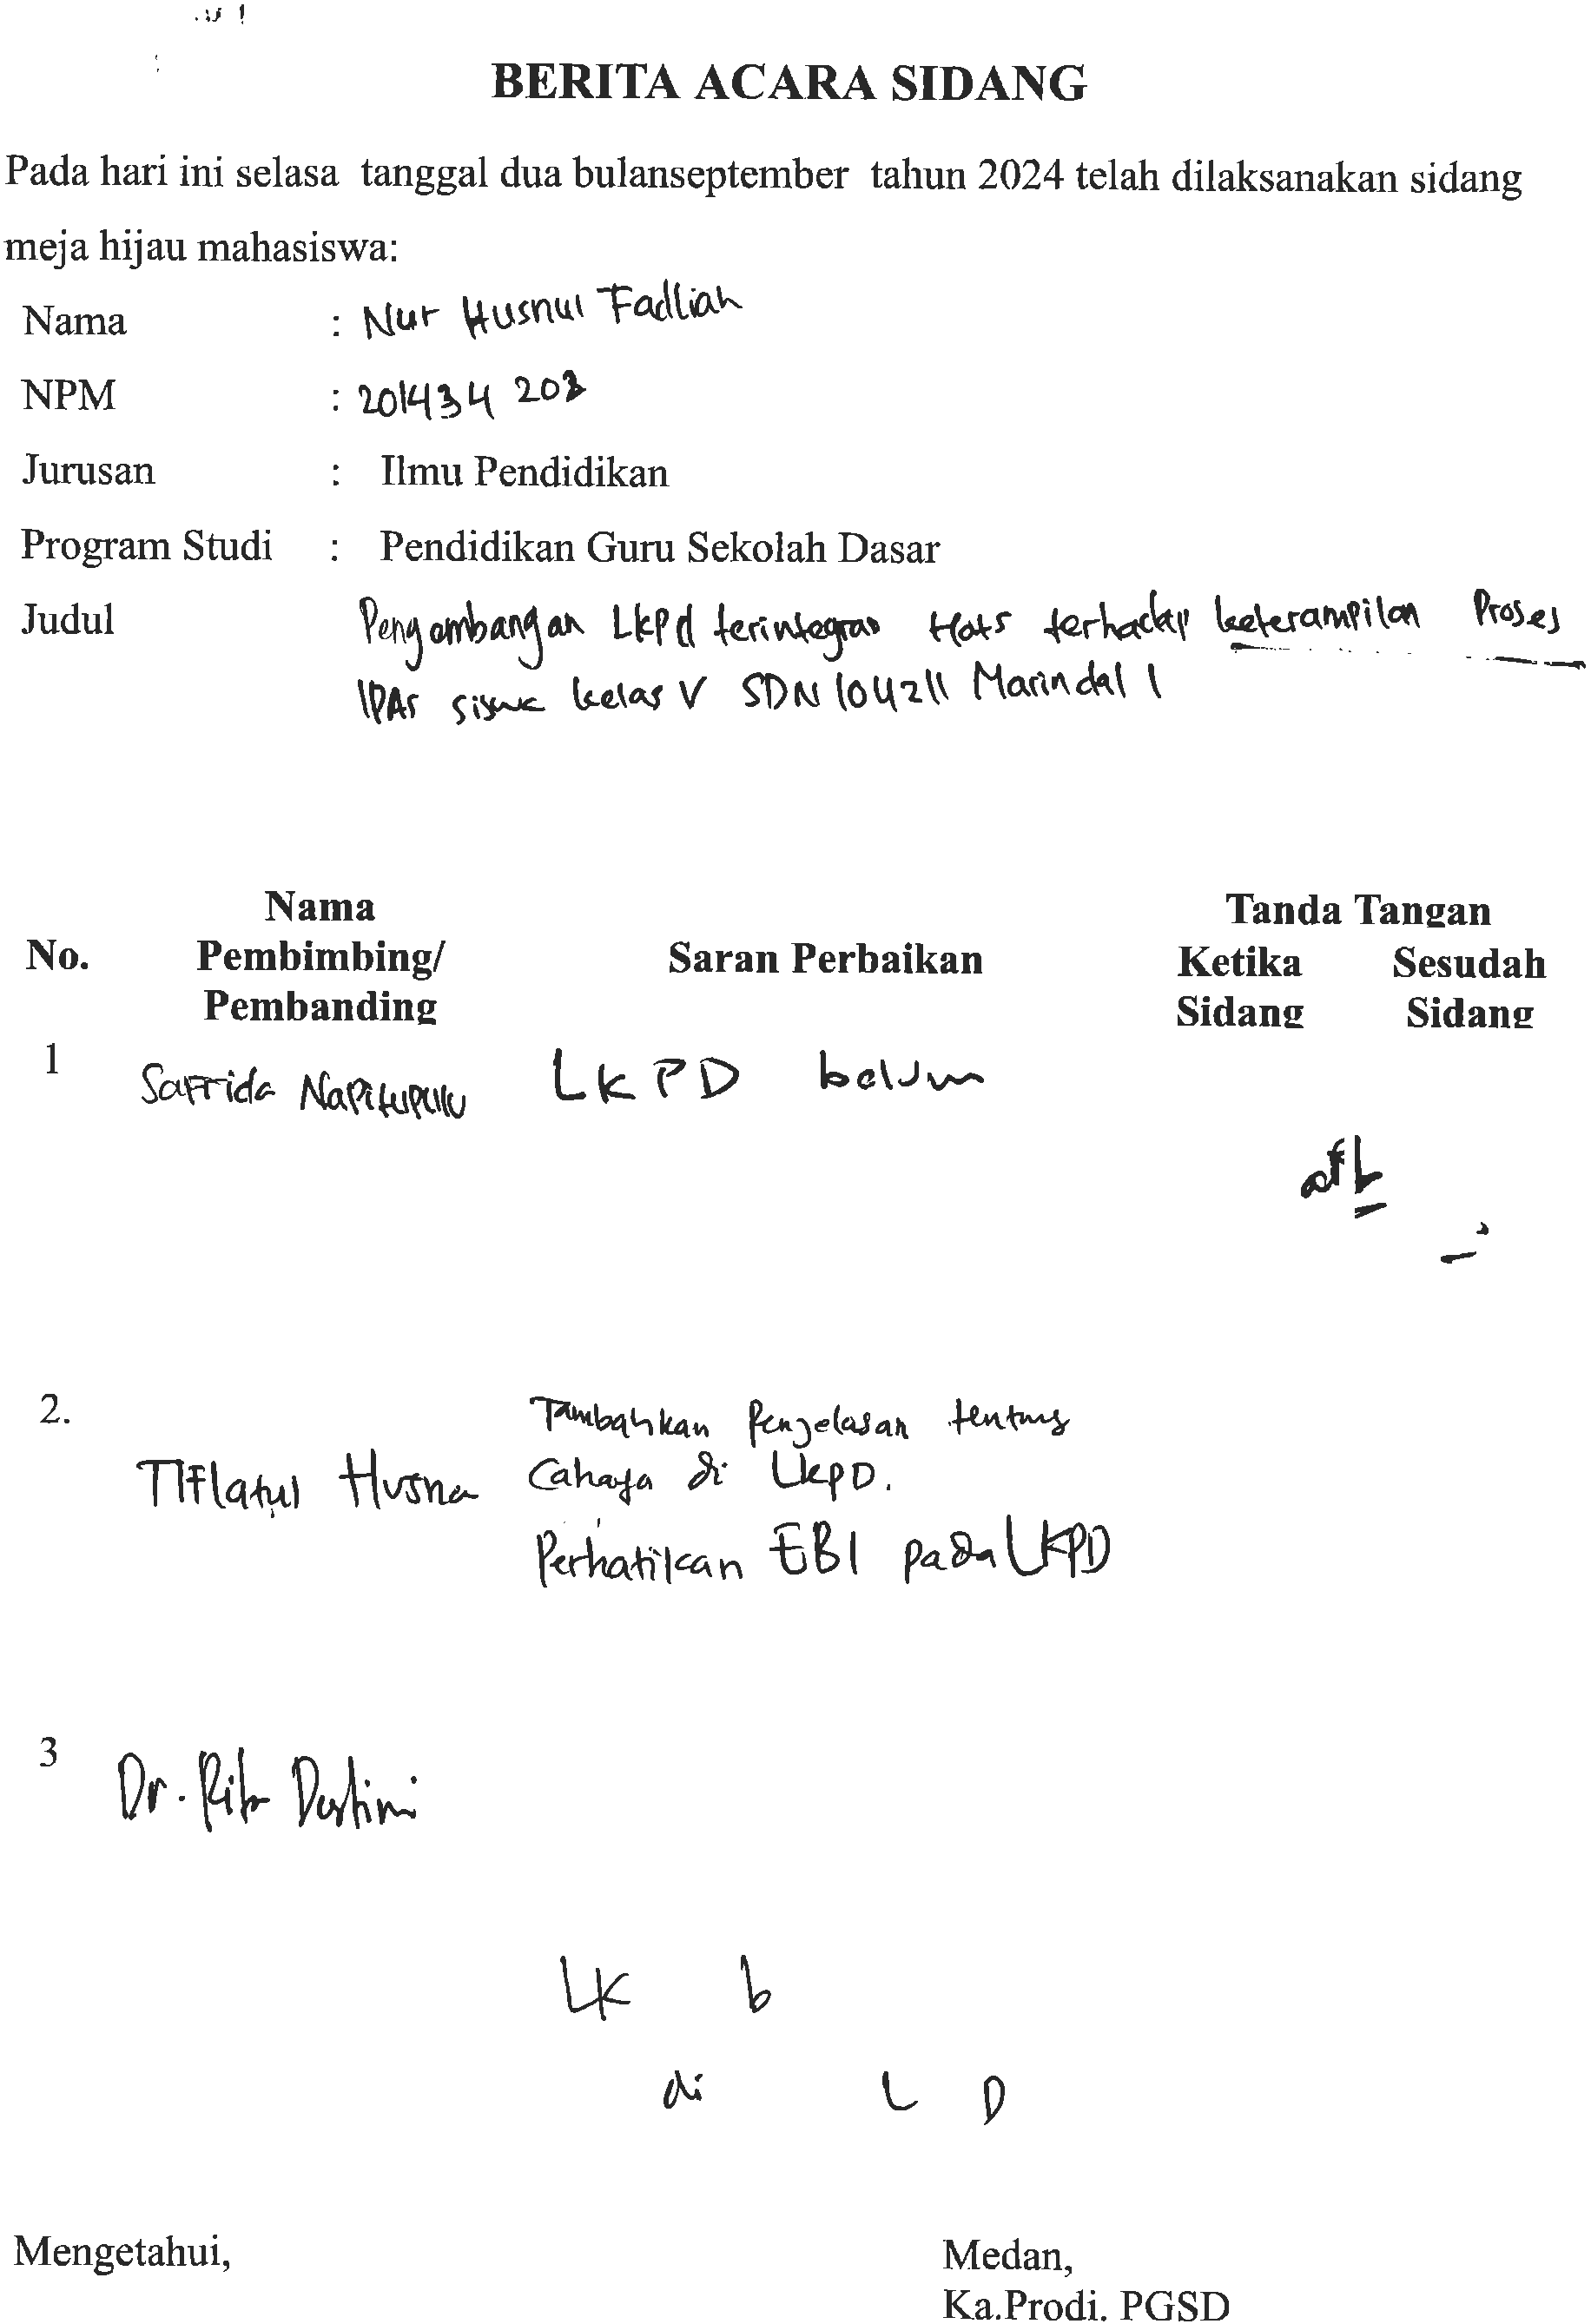 BERITA ACARA SIDANG
Pada hari ini selasa tanggal dua bulanseptember tahun 2024 telah dilaksanakan sidang
meja hijau mahasiswa:
Nama : Nur Husnul Fadliah
NPM : 201434 203
Jurusan : Ilmu Pendidikan
Program Studi : Pendidikan Guru Sekolah Dasar
Judul Pengembangan LKPd terintegras Hots terhadap keterampilan Proses
IPAS siswa kelas V SDN 104211 Marindal 1
Nama
Tanda Tangan
No. Pembimbing/ Saran Perbaikan Ketika Sesudah
Pembanding Sidang Sidang
1 Safrida Napitupulu LKPD belum
2. Tambahkan Penjelasan tentang
Tiflatul Husna Cahaya di LKPD.
Perhatikan EBI pada LKPD
3 Dr. Destini
LK b
di L D
Mengetahui, Medan,
Ka.Prodi. PGSD